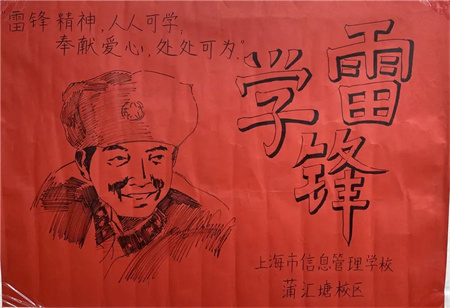 雷锋精神,人人可学,
奉献爱心,处处可为"
学雷锋
上海市信息管理学校
蒲汇塘校区